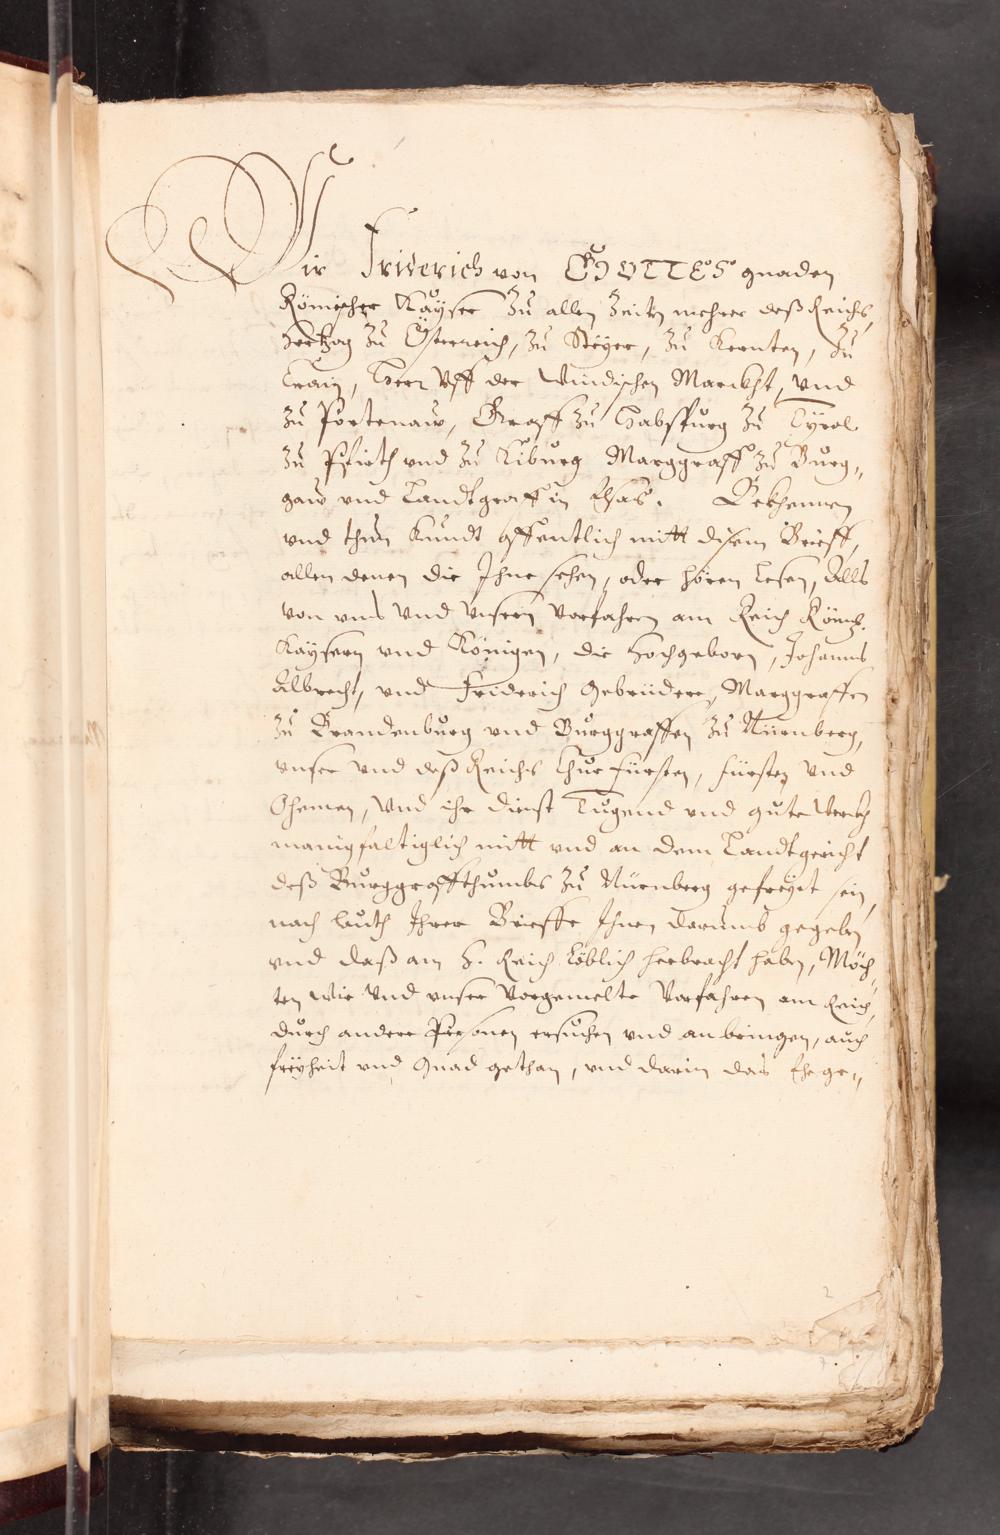 Wir Friderich von GOTTES gnaden
Römischer Kayser zu allen Zeitn mehrer deß Reichs,
Hertzog zu Österreich, zu Steyer, zu Kernten, zu
Crain, Herr Uff der Windischen Marckht, und
zu Portenaw, Graff zu Habspurg zu Tyrol
zu Pfirth und zu Kiburg Marggraff zu Burg„
gaw und Landtgraff in Elsas. Bekhennen
und thun kundt offentlich mitt disem Brieff,
allen denen die Ihne sehen, oder hören Lesen, Alls
von uns Und unsern Vorfahren am Reich Römis.
Kaysern und Königen, die Hochgeborn, Johanns
Albrecht, und Friderich Gebrüdere, Marggraffen
zu Brandenburg und Burggraffen zu Nürnberg,
unser und deß Reichs Churfürsten, fürsten und
Ohemen, Und ihr dienst Tugend und gute Werch
manigfaltiglich mitt und an dem Landtgericht
deß Burggraffthumbs zu Nürnberg gefreyet sein,
nach lauth Ihrer Brieffe Ihnen darumb gegeben
und daß am H. Reich löblich herbracht haben, Möch„
ten Wir Und unser Vorgemelte Vorfahren am Reich,
durch andere Personen ersuchen und anbringen, auch
freyheit und Gnad gethan, und darin das Ehege„